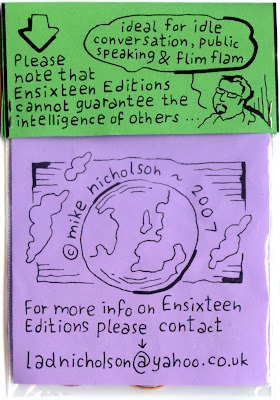 ideal for idle
conversation, public
speaking & flim flam
Please
note that
Ensixteen Editions
cannot guarantee the
intelligence of others ...
© mike nicholson ~ 2007
For more info on Ensixteen
Editions please contact
ladnicholson@yahoo.co.uk